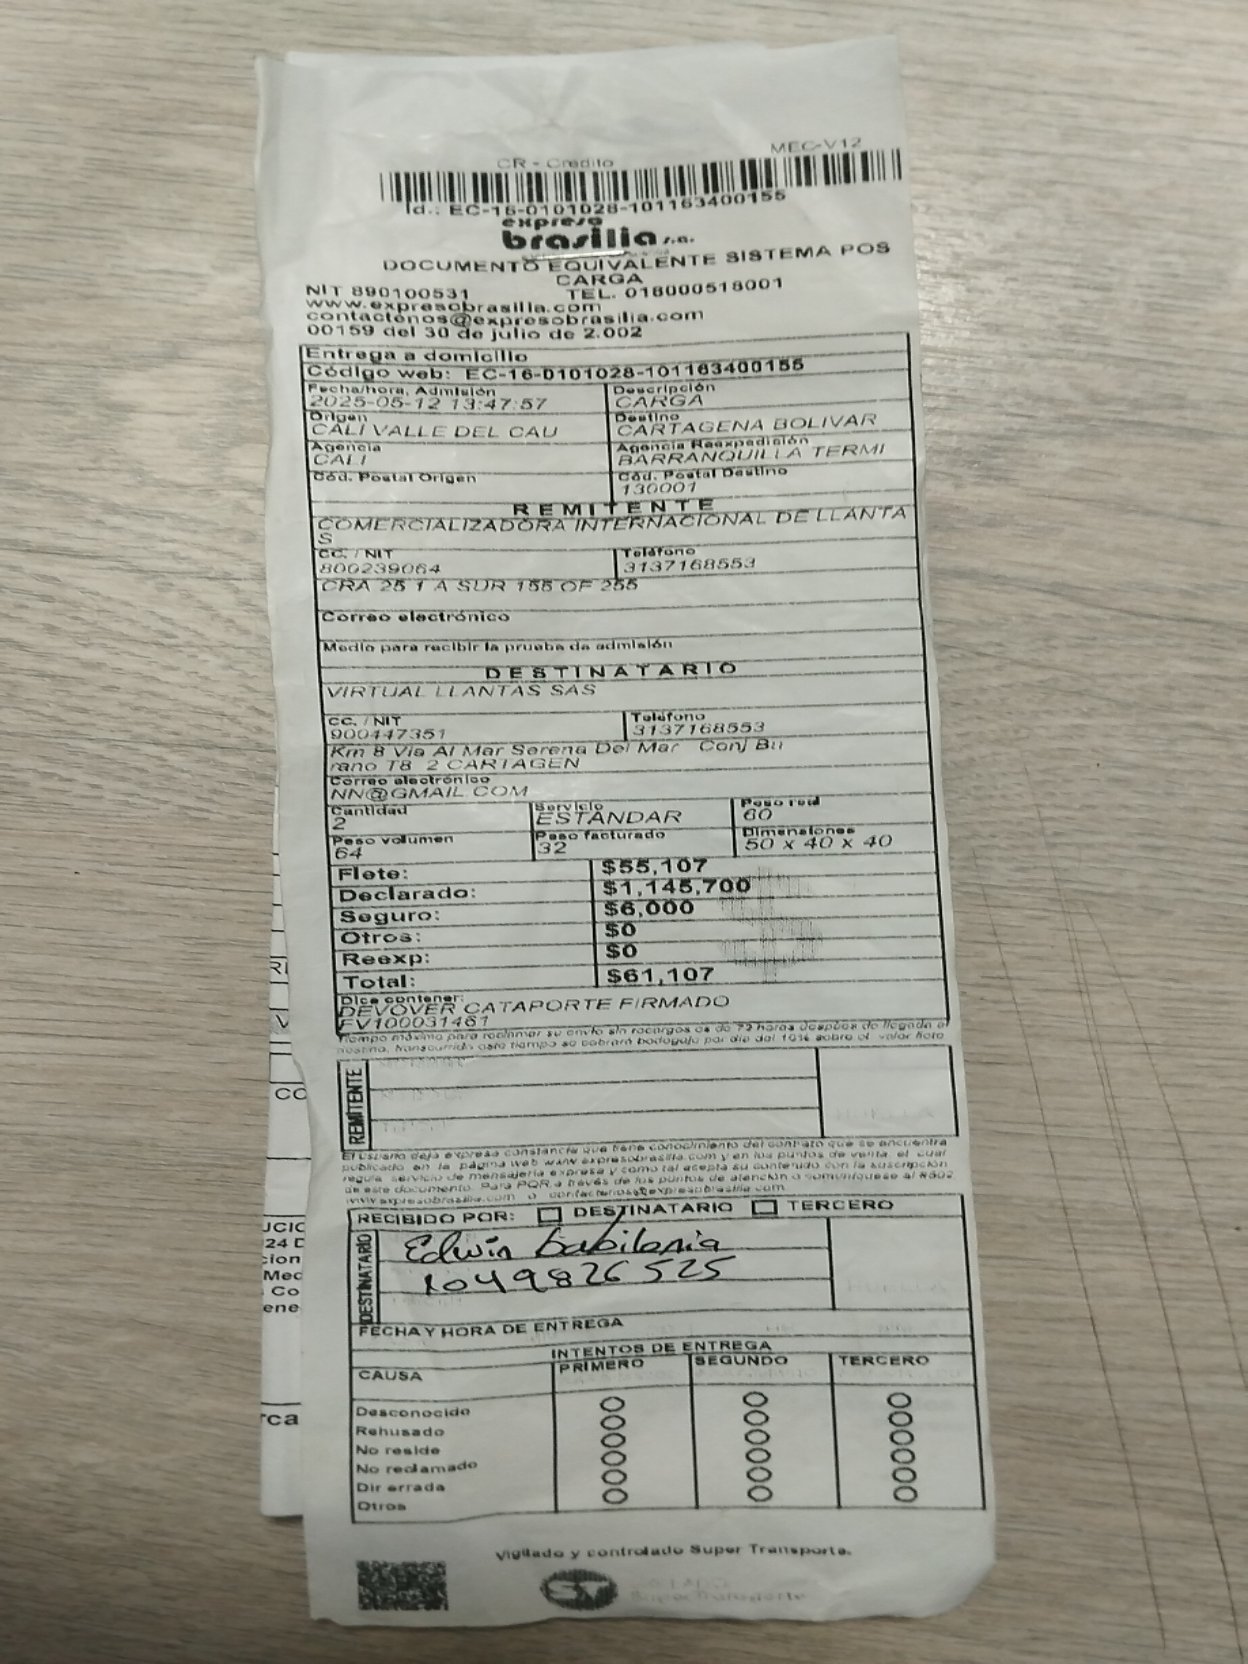 CR - Crédito MEC-V12
Id.: EC-16-0101028-101163400155
expreso
brasilia s.a.
DOCUMENTO EQUIVALENTE SISTEMA POS
CARGA
NIT 890100531 TEL. 018000518001
www.expresobrasilia.com
contactenos@expresobrasilia.com
00159 del 30 de julio de 2.002
Entrega a domicilio
Código web: EC-16-0101028-101163400155
Fecha/hora, Admisión Descripción
2025-05-12 13:47:57 CARGA
Origen Destino
CALI VALLE DEL CAU CARTAGENA BOLIVAR
Agencia Agencia Reexpedición
CALI BARRANQUILLA TERMI
Cód. Postal Origen Cód. Postal Destino
130001
REMITENTE
COMERCIALIZADORA INTERNACIONAL DE LLANTA
S
CC. / NIT Teléfono
800239064 3137168553
CRA 25 1 A SUR 155 OF 255
Correo electrónico
Medio para recibir la prueba de admisión
DESTINATARIO
VIRTUAL LLANTAS SAS
CC. / NIT Teléfono
900447351 3137168553
Km 8 Via Al Mar Serena Del Mar Conj Bu
rano T8 2 CARTAGEN
Correo electrónico
NN@GMAIL.COM
Cantidad Servicio Peso real
2 ESTANDAR 60
Peso volumen Peso facturado Dimensiones
64 32 50 x 40 x 40
Flete: $55,107
Declarado: $1,145,700
Seguro: $6,000
Otros: $0
Reexp: $0
Total: $61,107
Dice contener:
DEVOVER CATAPORTE FIRMADO
FV100031461
Tiempo máximo para reclamar su envío sin recargos es de 72 horas después de llegada al
destino, transcurrido este tiempo se cobrará bodegaje por día del 10% sobre el valor flete
REMITENTE
El usuario deja expresa constancia que tiene conocimiento del contrato que se encuentra
publicado en la página web www.expresobrasilia.com y en los puntos de venta, el cual
regula servicio de mensajería expresa y como tal acepta su contenido con la suscripción
de este documento. Para PQR a través de los puntos de atención o comuníquese al #502
www.expresobrasilia.com o contactenos@expresobrasilia.com
RECIBIDO POR: DESTINATARIO TERCERO
DESTINATARIO
Edwin babilonia
1049826525
FECHA Y HORA DE ENTREGA
INTENTOS DE ENTREGA
CAUSA PRIMERO SEGUNDO TERCERO
Desconocido
Rehusado
No reside
No reclamado
Dir errada
Otros
Vigilado y controlado Super Transporte.
ST